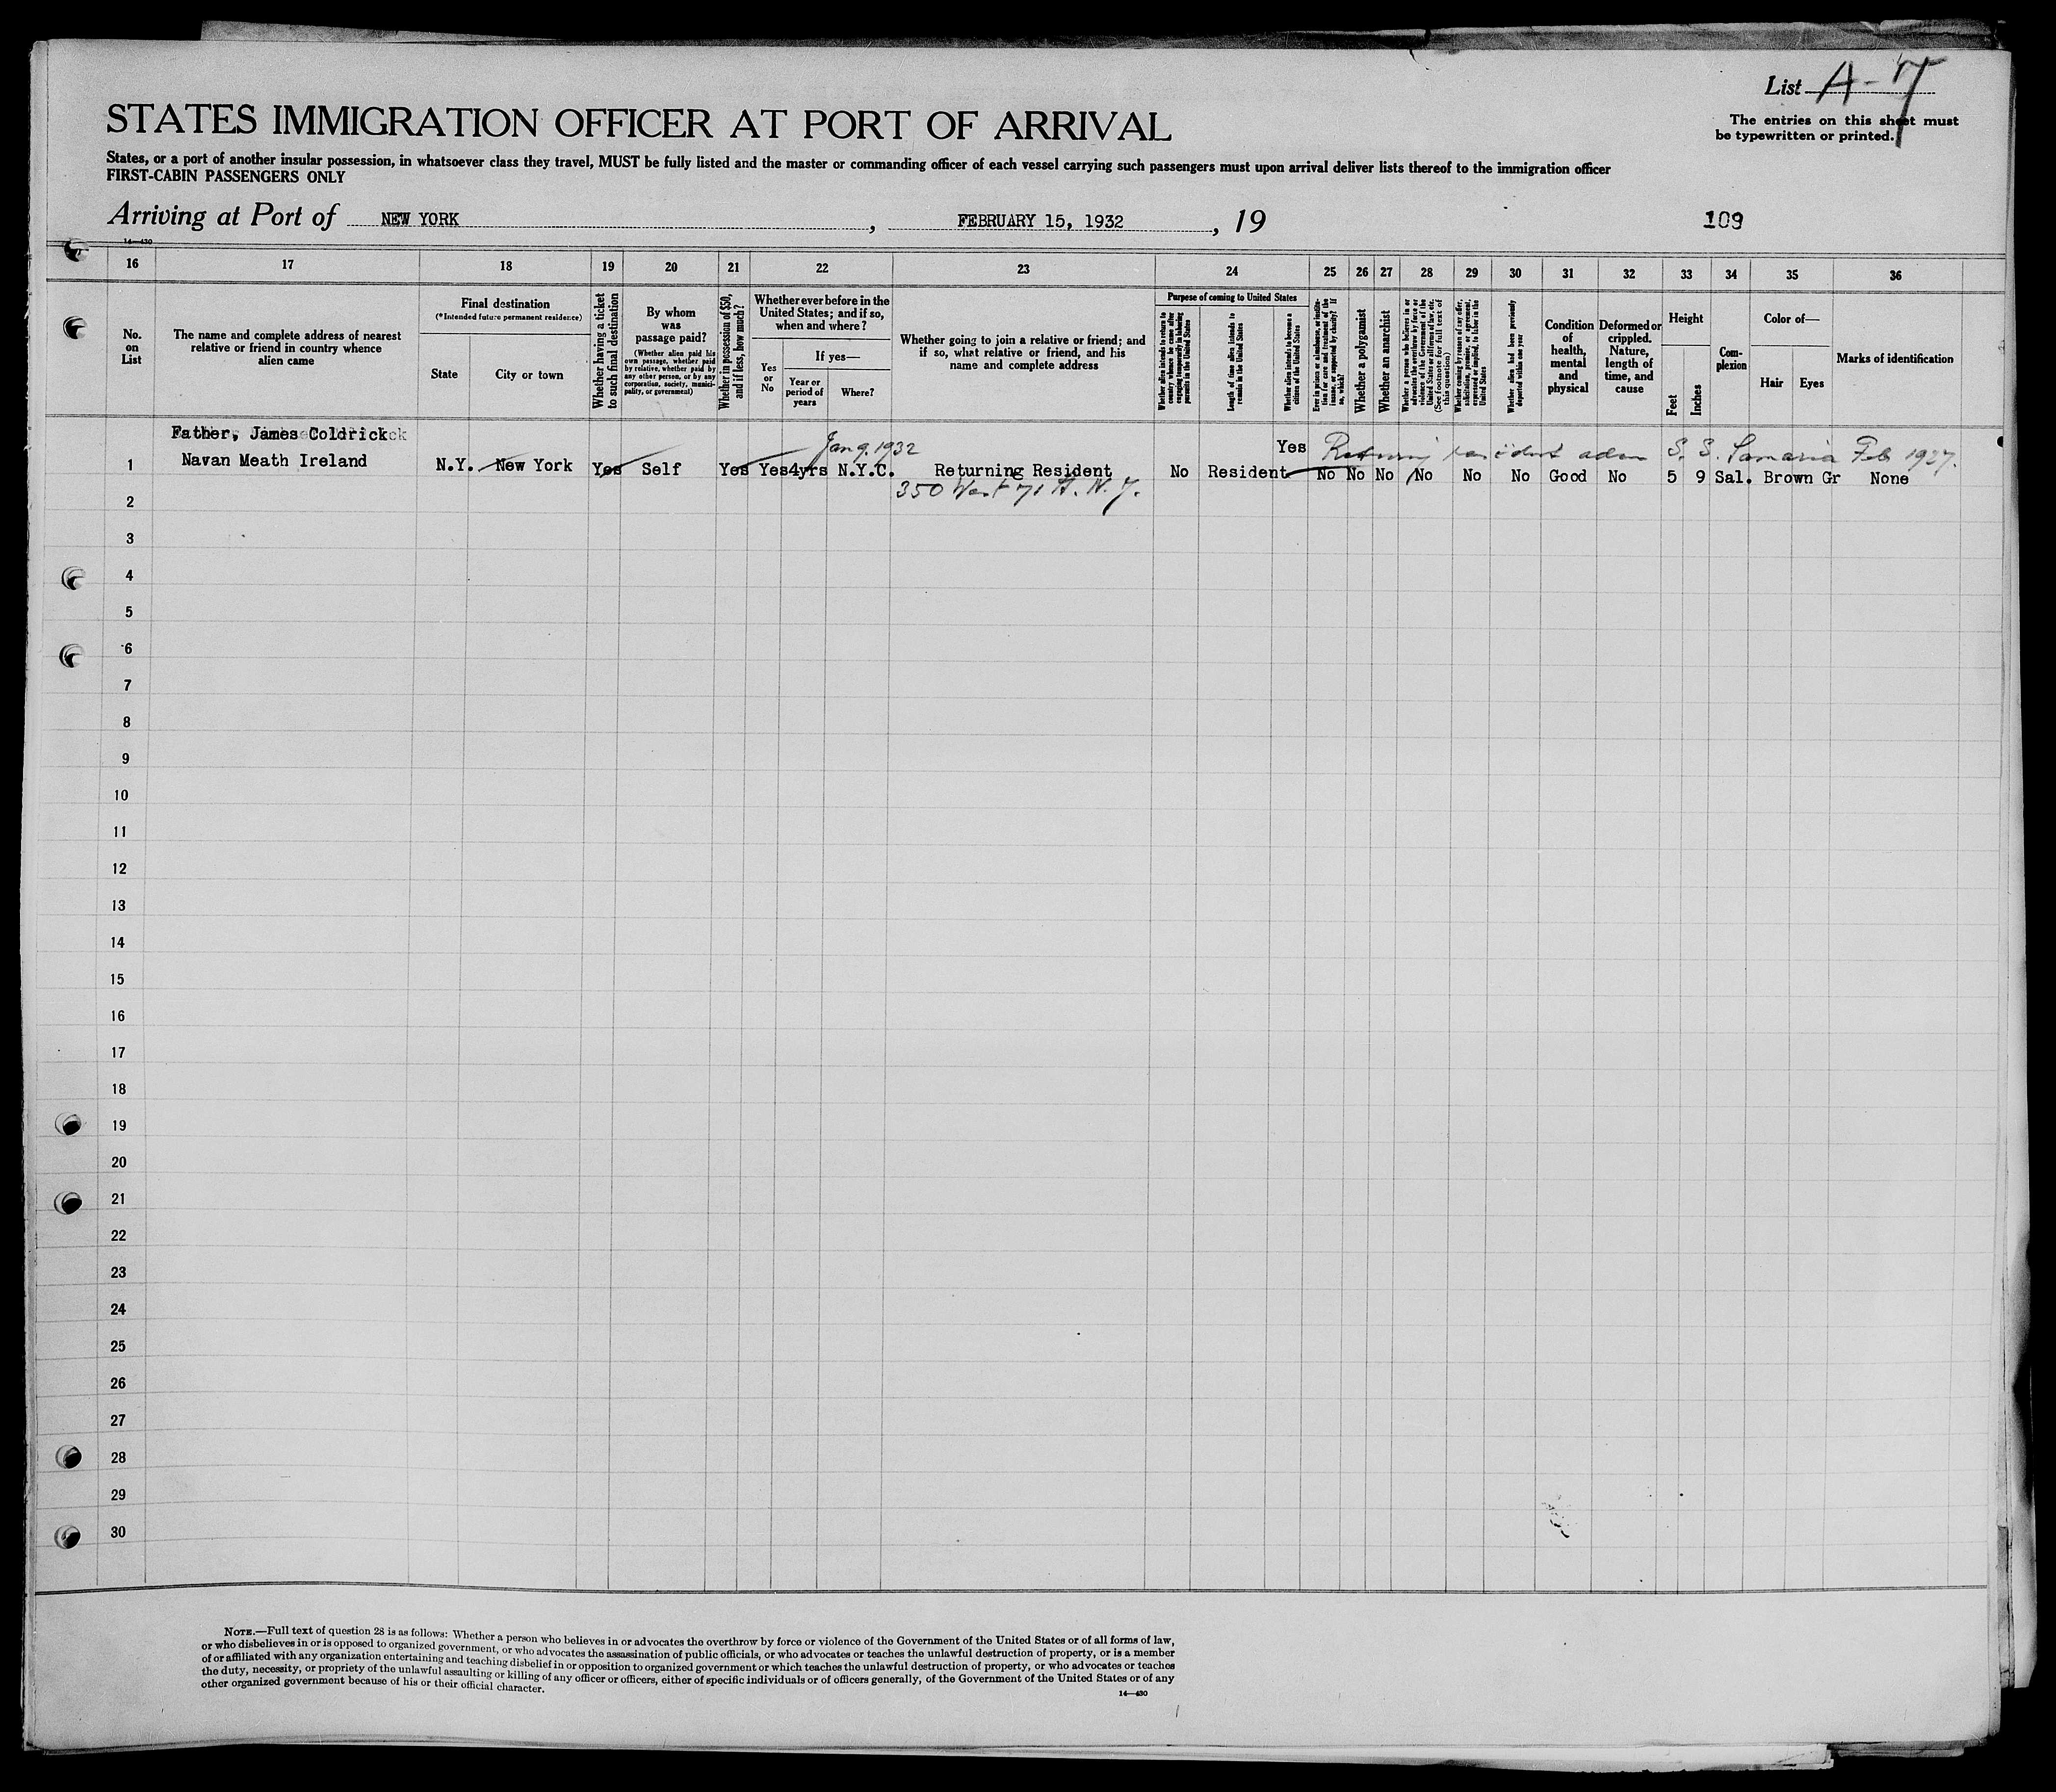 List A-7
The entries on this sheet must
be typewritten or printed.
STATES IMMIGRATION OFFICER AT PORT OF ARRIVAL
States, or a port of another insular possession, in whatsoever class they travel, MUST be fully listed and the master or commanding officer of each vessel carrying such passengers must upon arrival deliver lists thereof to the immigration officer
FIRST-CABIN PASSENGERS ONLY
Arriving at Port of NEW YORK, FEBRUARY 15, 1932, 19
109
14—430
16 17 18 19 20 21 22 23 24 25 26 27 28 29 30 31 32 33 34 35 36
No.
on
List
The name and complete address of nearest
relative or friend in country whence
alien came
Final destination
(*Intended future permanent residence)
State
City or town
Whether having a ticket
to such final destination
By whom
was
passage paid?
(Whether alien paid his
own passage, whether paid
by relative, whether paid by
any other person, or by any
corporation, society, munici-
pality, or government)
Whether in possession of $50,
and if less, how much?
Whether ever before in the
United States; and if so,
when and where?
Yes
or
No
If yes—
Year or
period of
years
Where?
Whether going to join a relative or friend; and
if so, what relative or friend, and his
name and complete address
Purpose of coming to United States
Whether alien intends to return to
country whence he came after
engaging temporarily in laboring
pursuits in the United States
Length of time alien intends to
remain in the United States
Whether alien intends to become a
citizen of the United States
Ever in prison or almshouse, or institu-
tion for care and treatment of the
insane, or supported by charity? If
so, which?
Whether a polygamist
Whether an anarchist
Whether a person who believes in or
advocates the overthrow by force or
violence of the Government of the
United States or all forms of law, etc.
(See footnote for full text of
this question)
Whether coming by reason of any offer,
solicitation, promise, or agreement,
expressed or implied, to labor in the
United States
Whether alien had been previously
deported within one year
Condition
of
health,
mental
and
physical
Deformed or
crippled.
Nature,
length of
time, and
cause
Height
Feet
Inches
Com-
plexion
Color of—
Hair
Eyes
Marks of identification
Father, James Coldrick
Jan 9, 1932
Yes Returning resident adm S. S. Samaria Feb 1927.
1 Navan Meath Ireland N.Y. New York Yes Self Yes Yes 4yrs N.Y.C. Returning Resident No Resident No No No No No No Good No 5 9 Sal. Brown Gr None
350 West 71 St. N.Y.
2
3
4
5
6
7
8
9
10
11
12
13
14
15
16
17
18
19
20
21
22
23
24
25
26
27
28
29
30
NOTE.—Full text of question 28 is as follows: Whether a person who believes in or advocates the overthrow by force or violence of the Government of the United States or of all forms of law,
or who disbelieves in or is opposed to organized government, or who advocates the assassination of public officials, or who advocates or teaches the unlawful destruction of property, or is a member
of or affiliated with any organization entertaining and teaching disbelief in or opposition to organized government or which teaches the unlawful destruction of property, or who advocates or teaches
the duty, necessity, or propriety of the unlawful assaulting or killing of any officer or officers, either of specific individuals or of officers generally, of the Government of the United States or of any
other organized government because of his or their official character.
14—430